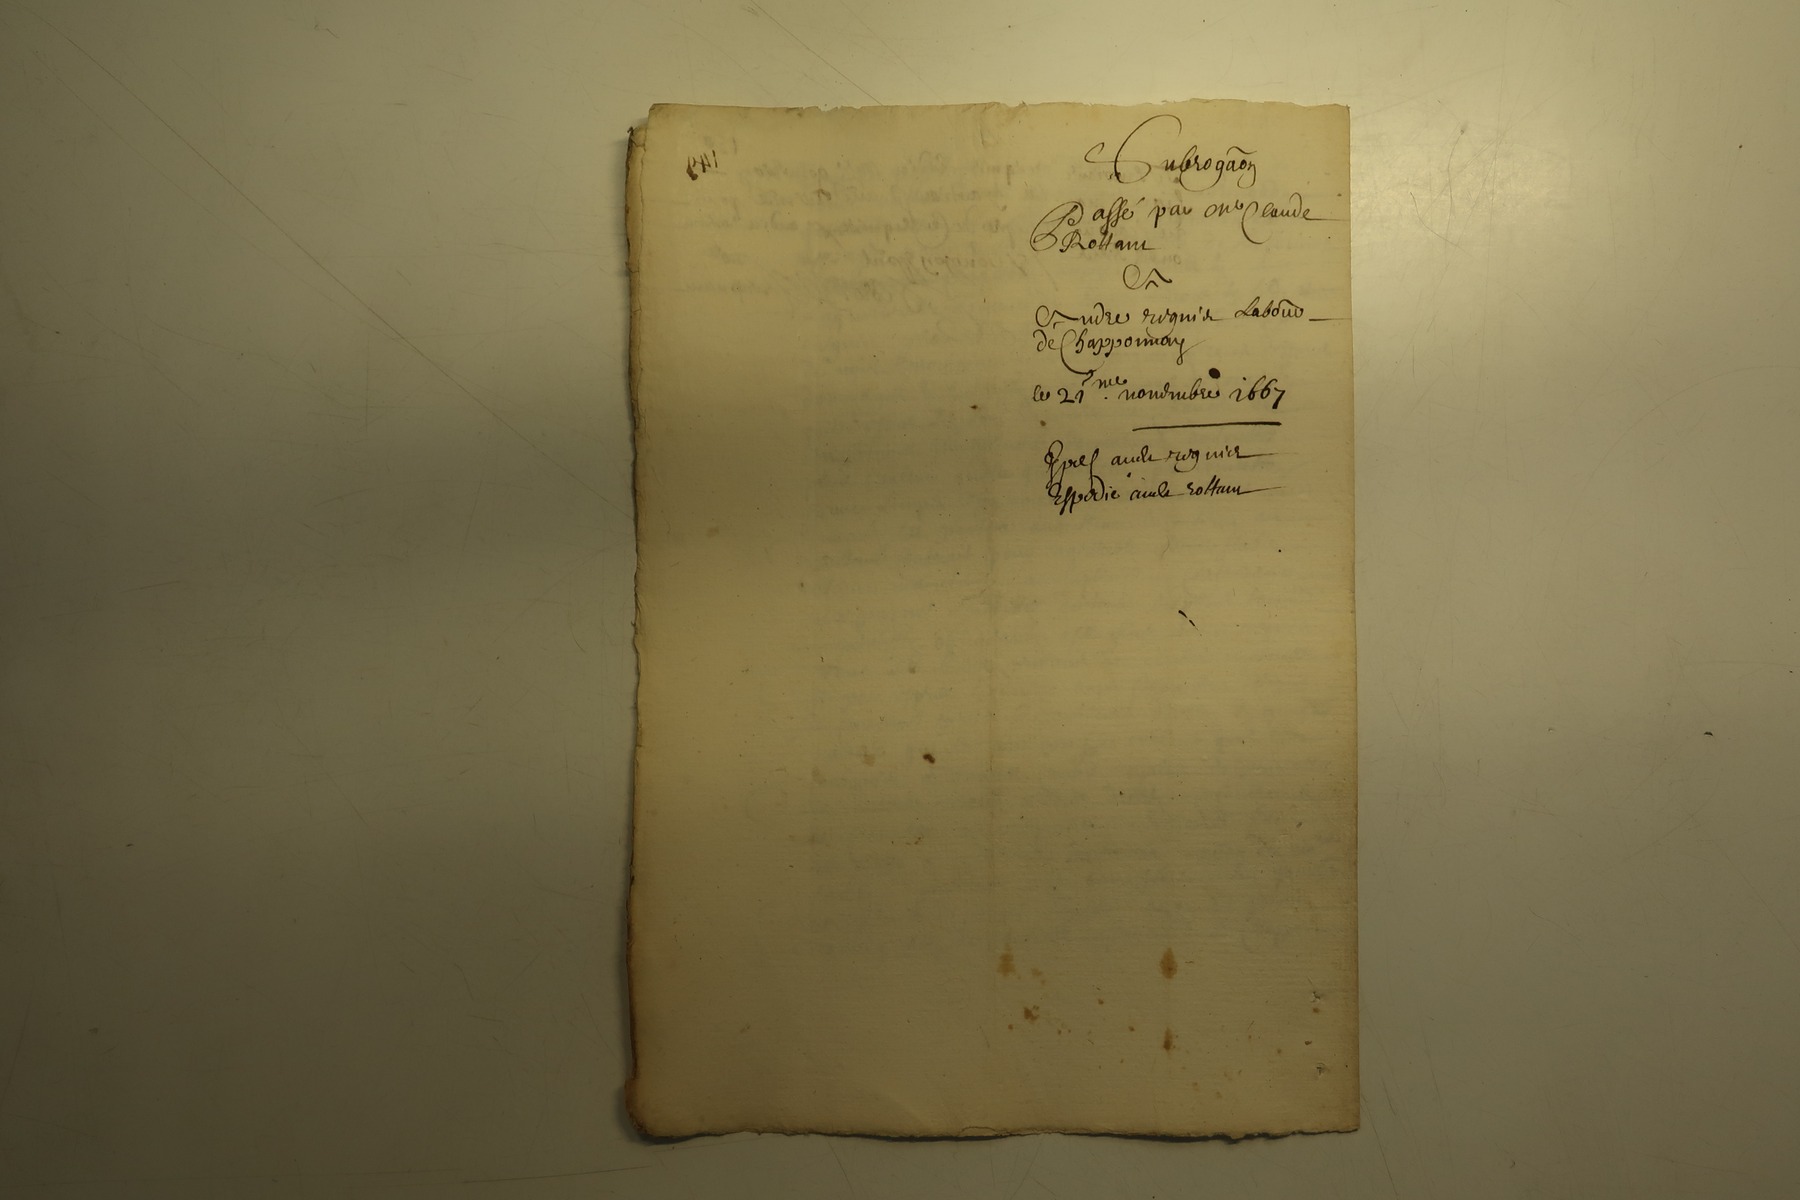 Subrogãon
Passé par Me Claude
Rottam
A
Andre regnier Labour
de Chapponnay
le 21me. novembre 1667
audt regnier
Expedie audt rottam